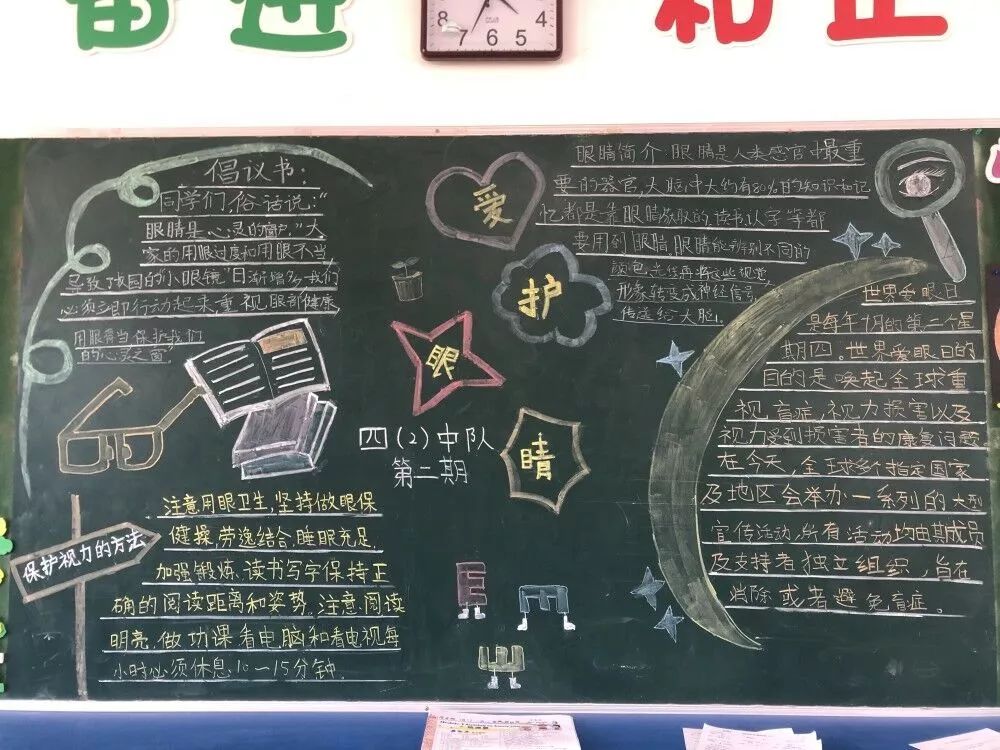 奋进
和正
8 7 6 5 4
倡议书:
同学们,俗话说:“
眼睛是心灵的窗户。”大
家的用眼过度和用眼不当,
导致我国的“小眼镜”日渐增多,我们
必须立即行动起来,重视眼部健康
用眼得当 保护我们
的心灵之窗
爱
护
眼
睛
四(2)中队
第二期
眼睛简介:眼睛是人类感官中最重
要的器官,大脑中大约有80%的知识和记
忆都是靠眼睛获取的,读书认字等都
要用到眼睛 眼睛能辨别不同的
颜色,光线再将这些视觉,
形象转变成神经信号,
传送给大脑。
世界爱眼日
是每年10月的第二个星
期四。世界爱眼日的
目的是唤起全球重
视盲症,视力损害以及
视力受到损害者的康复问题
在今天,全球多个指定国家
及地区会举办一系列的大型
宣传活动,所有活动均由其成员
及支持者独立组织,旨在
消除或者避免盲症。
保护视力的方法
注意用眼卫生,坚持做眼保
健操,劳逸结合,睡眠充足,
加强锻炼.读书写字保持正
确的阅读距离和姿势.注意阅读
明亮.做功课看电脑和看电视每
小时必须休息10—15分钟.
E